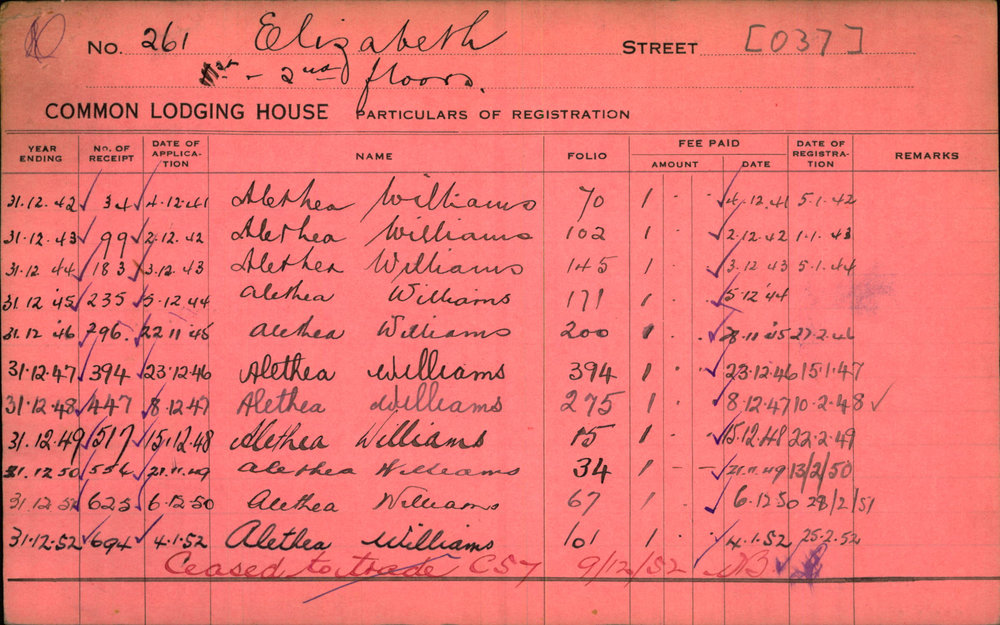 No. 261 Elizabeth STREET [037]
1st - 2nd floors.
COMMON LODGING HOUSE PARTICULARS OF REGISTRATION
YEAR ENDING NO. OF RECEIPT DATE OF APPLICA-TION NAME FOLIO FEE PAID AMOUNT DATE DATE OF REGISTRA-TION REMARKS
31.12.42 34 4.12.41 Alethea Williams 70 1 . . 4.12.41 5.1.42
31.12.43 99 2.12.42 Alethea Williams 102 1 . . 2.12.42 1.1.43
31.12.44 183 3.12.43 Alethea Williams 145 1 . . 3.12.43 5.1.44
31.12.45 235 5.12.44 Alethea Williams 171 1 . . 5.12.44
31.12.46 296 22.11.45 Alethea Williams 200 1 . . 11.45 27.2.46
31.12.47 394 23.12.46 Alethea Williams 394 1 . . 23.12.46 15.1.47
31.12.48 447 8.12.47 Alethea Williams 275 1 . . 8.12.47 10.2.48 ✓
31.12.49 517 15.12.48 Alethea Williams 15 1 . . 15.12.48 22.2.49
31.12.50 554 21.11.49 Alethea Williams 34 1 - - 21.11.49 13/2/50
31.12.51 625 6.12.50 Alethea Williams 67 1 . . 6.12.50 28/2/51
31.12.52 694 4.1.52 Alethea Williams 101 1 . . 4.1.52 25.2.52
Ceased to trade C57 9/12/52